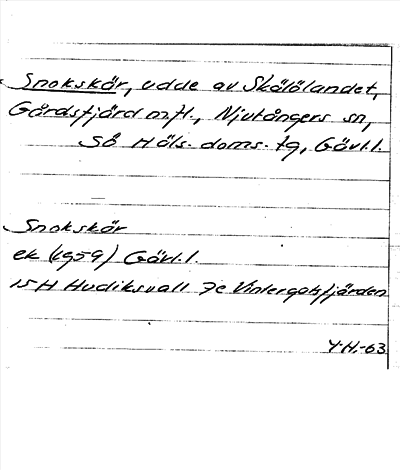 Snokskär, udde av Skålölandet,
Gårdsfjärd m.fl., Njutångers sn,
Sö Häls. doms. tg, Gävl.l.
Snokskär
ek (1959) Gävl.l.
15H Hudiksvall 7c Vintergatsfjärden
Y.H.-63